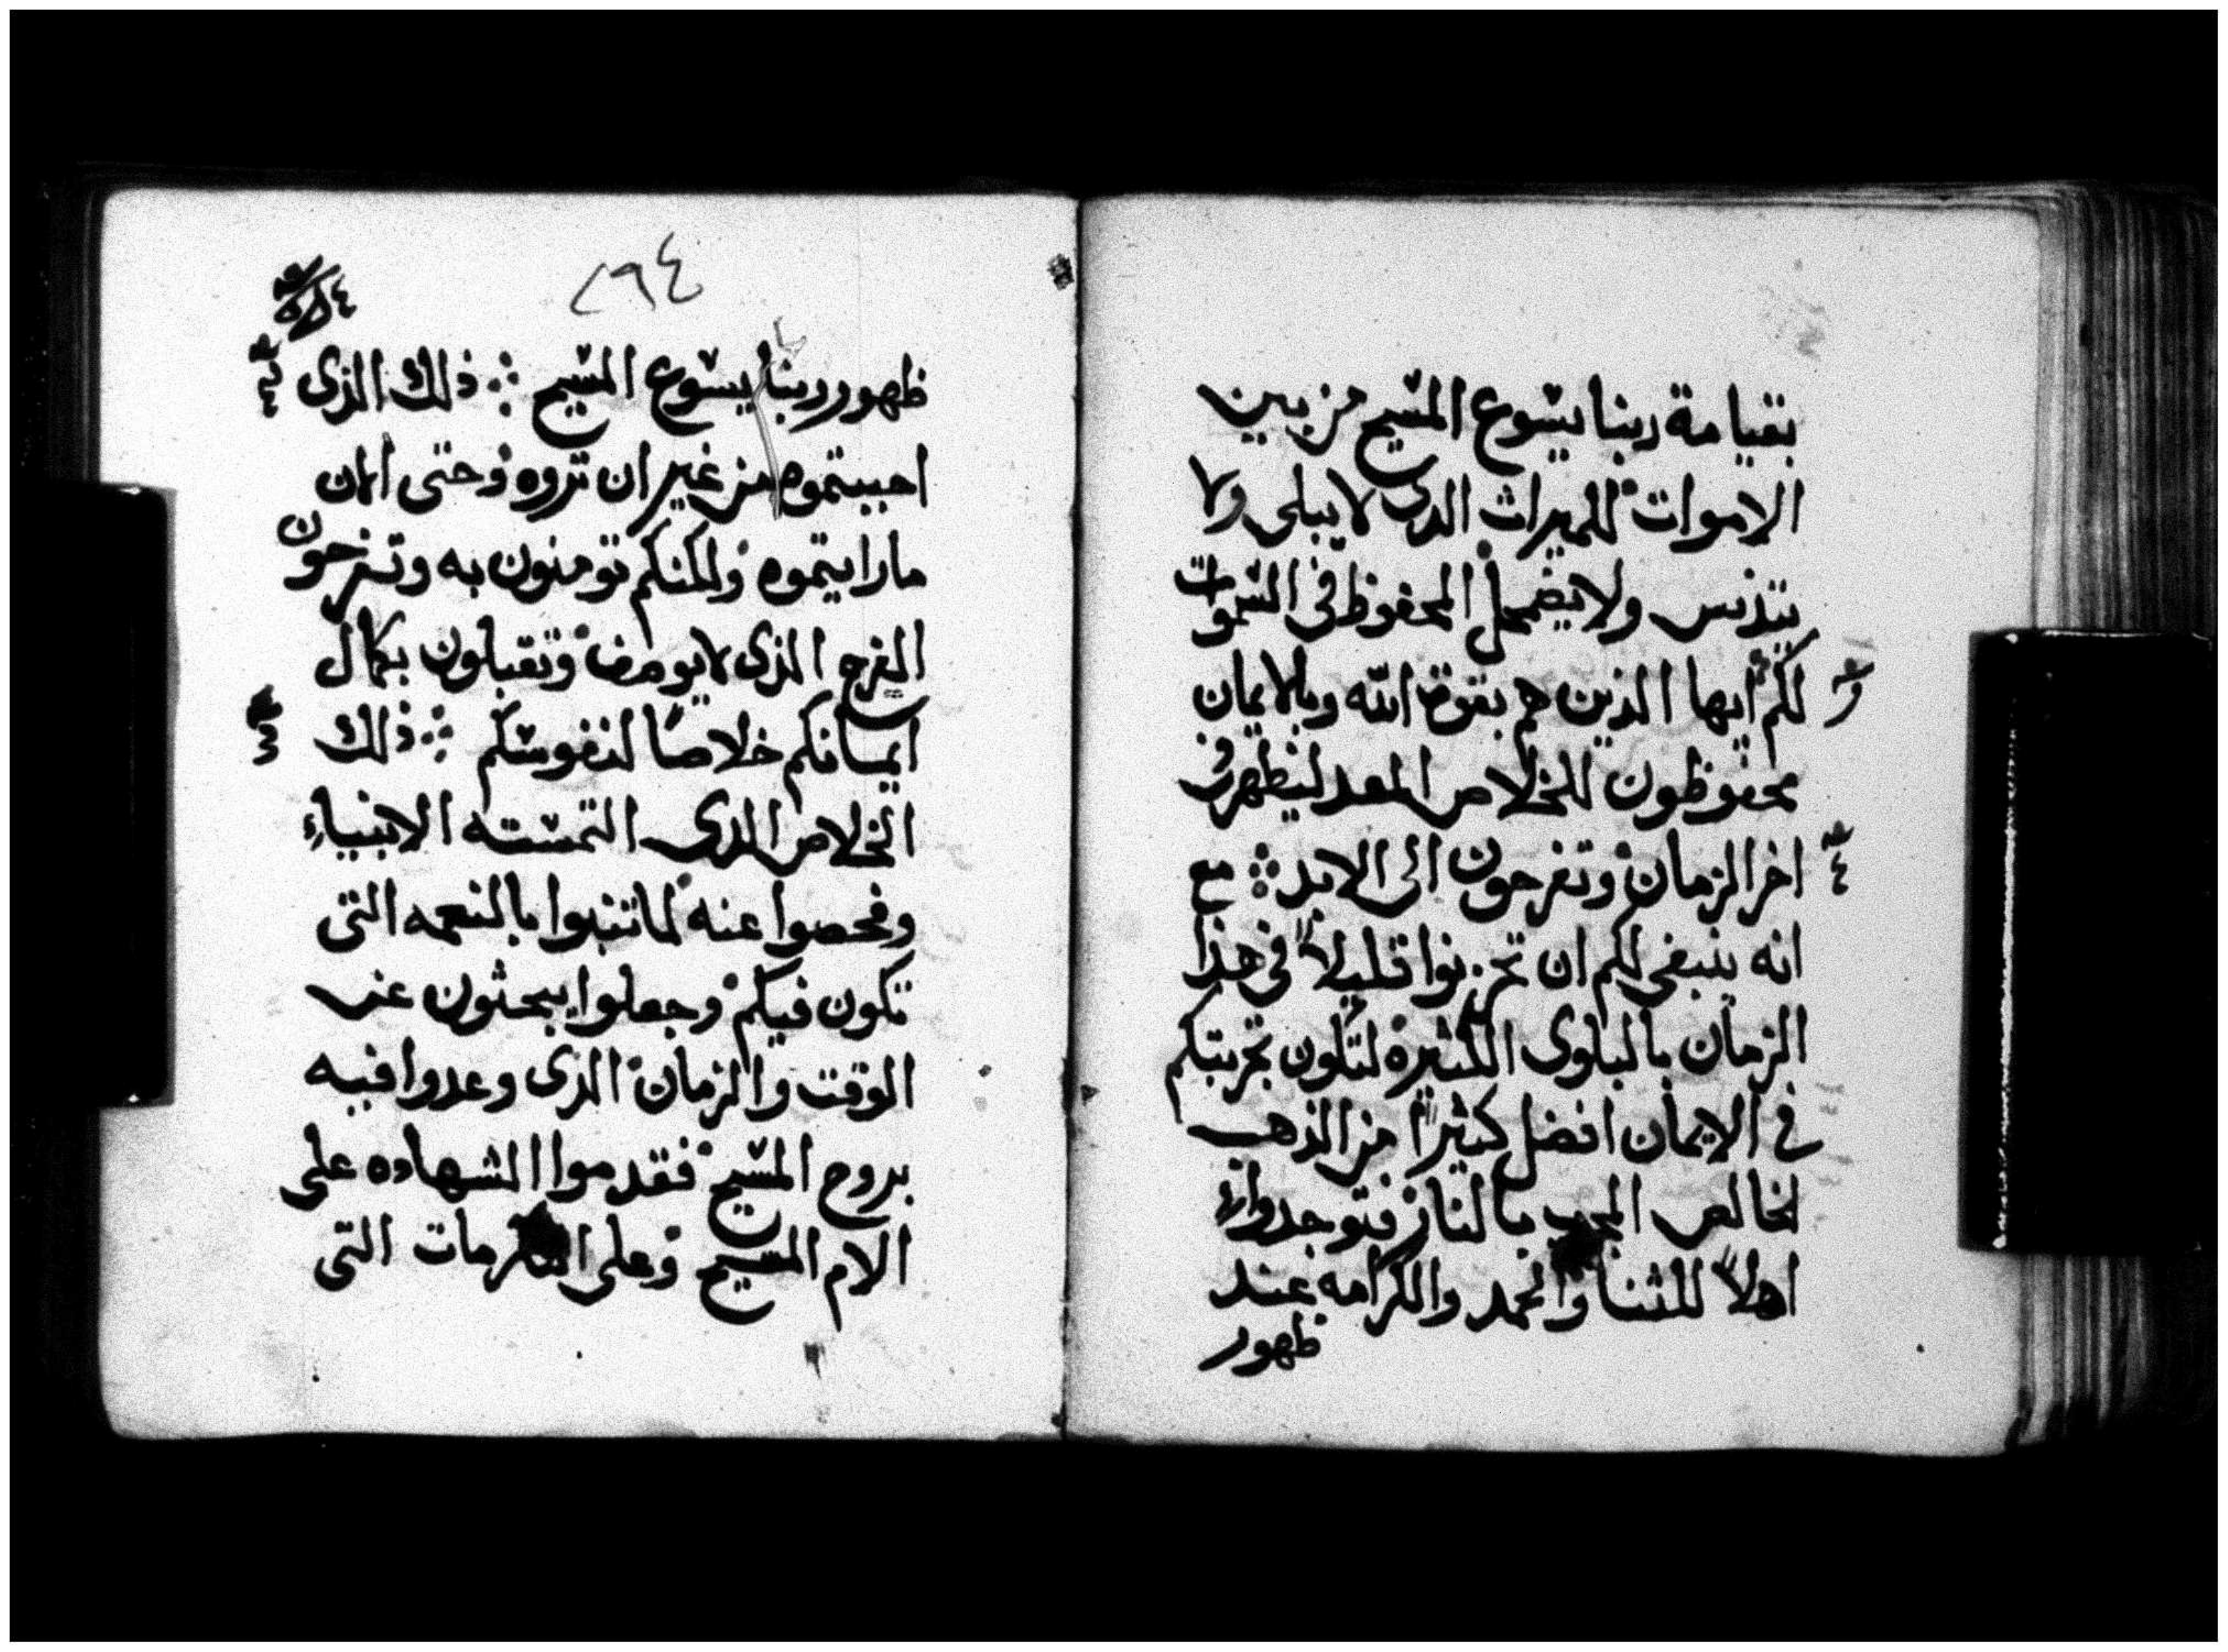 بقيامة ربنا يسوع المسيح من بين
الاموات للميراث الذى لا يبلى ولا
يتدنس ولا يضمحل المحفوظ فى السموات
لكم ايها الذين هم بقوة الله وبالايمان
محفوظون للخلاص المعد ليظهر فى
اخر الزمان وتفرحون الى الابد ؞ مع
انه ينبغى لكم ان تحزنوا قليلاً فى هذا
الزمان بالبلوى الكثيرة لتكون تجربتكم
فى الايمان افضل كثيراً من الذهب
الخالص المجرب بالنار فتوجدوا
اهلاً للثنا والحمد والكرامه عند
ظهور
٢٩٤
ظهور ربنا يسوع المسيح ؞ ذلك الذى
احببتموه من غير ان تروه وحتى الان
ما رايتموه ولكنكم تومنون به وتفرحون
الفرح الذى لا يوصف وتقبلون بكمال
ايمانكم خلاصًا لنفوسكم ؞ ذلك
الخلاص الذى التمسته الانبياء
وفحصوا عنه لما تنبوا بالنعمه التى
تكون فيكم وجعلوا يبحثون عن
الوقت والزمان الذى وعدوا فيه
بروح المسيح فقدموا الشهاده على
الام المسيح وعلى الكرمات التى